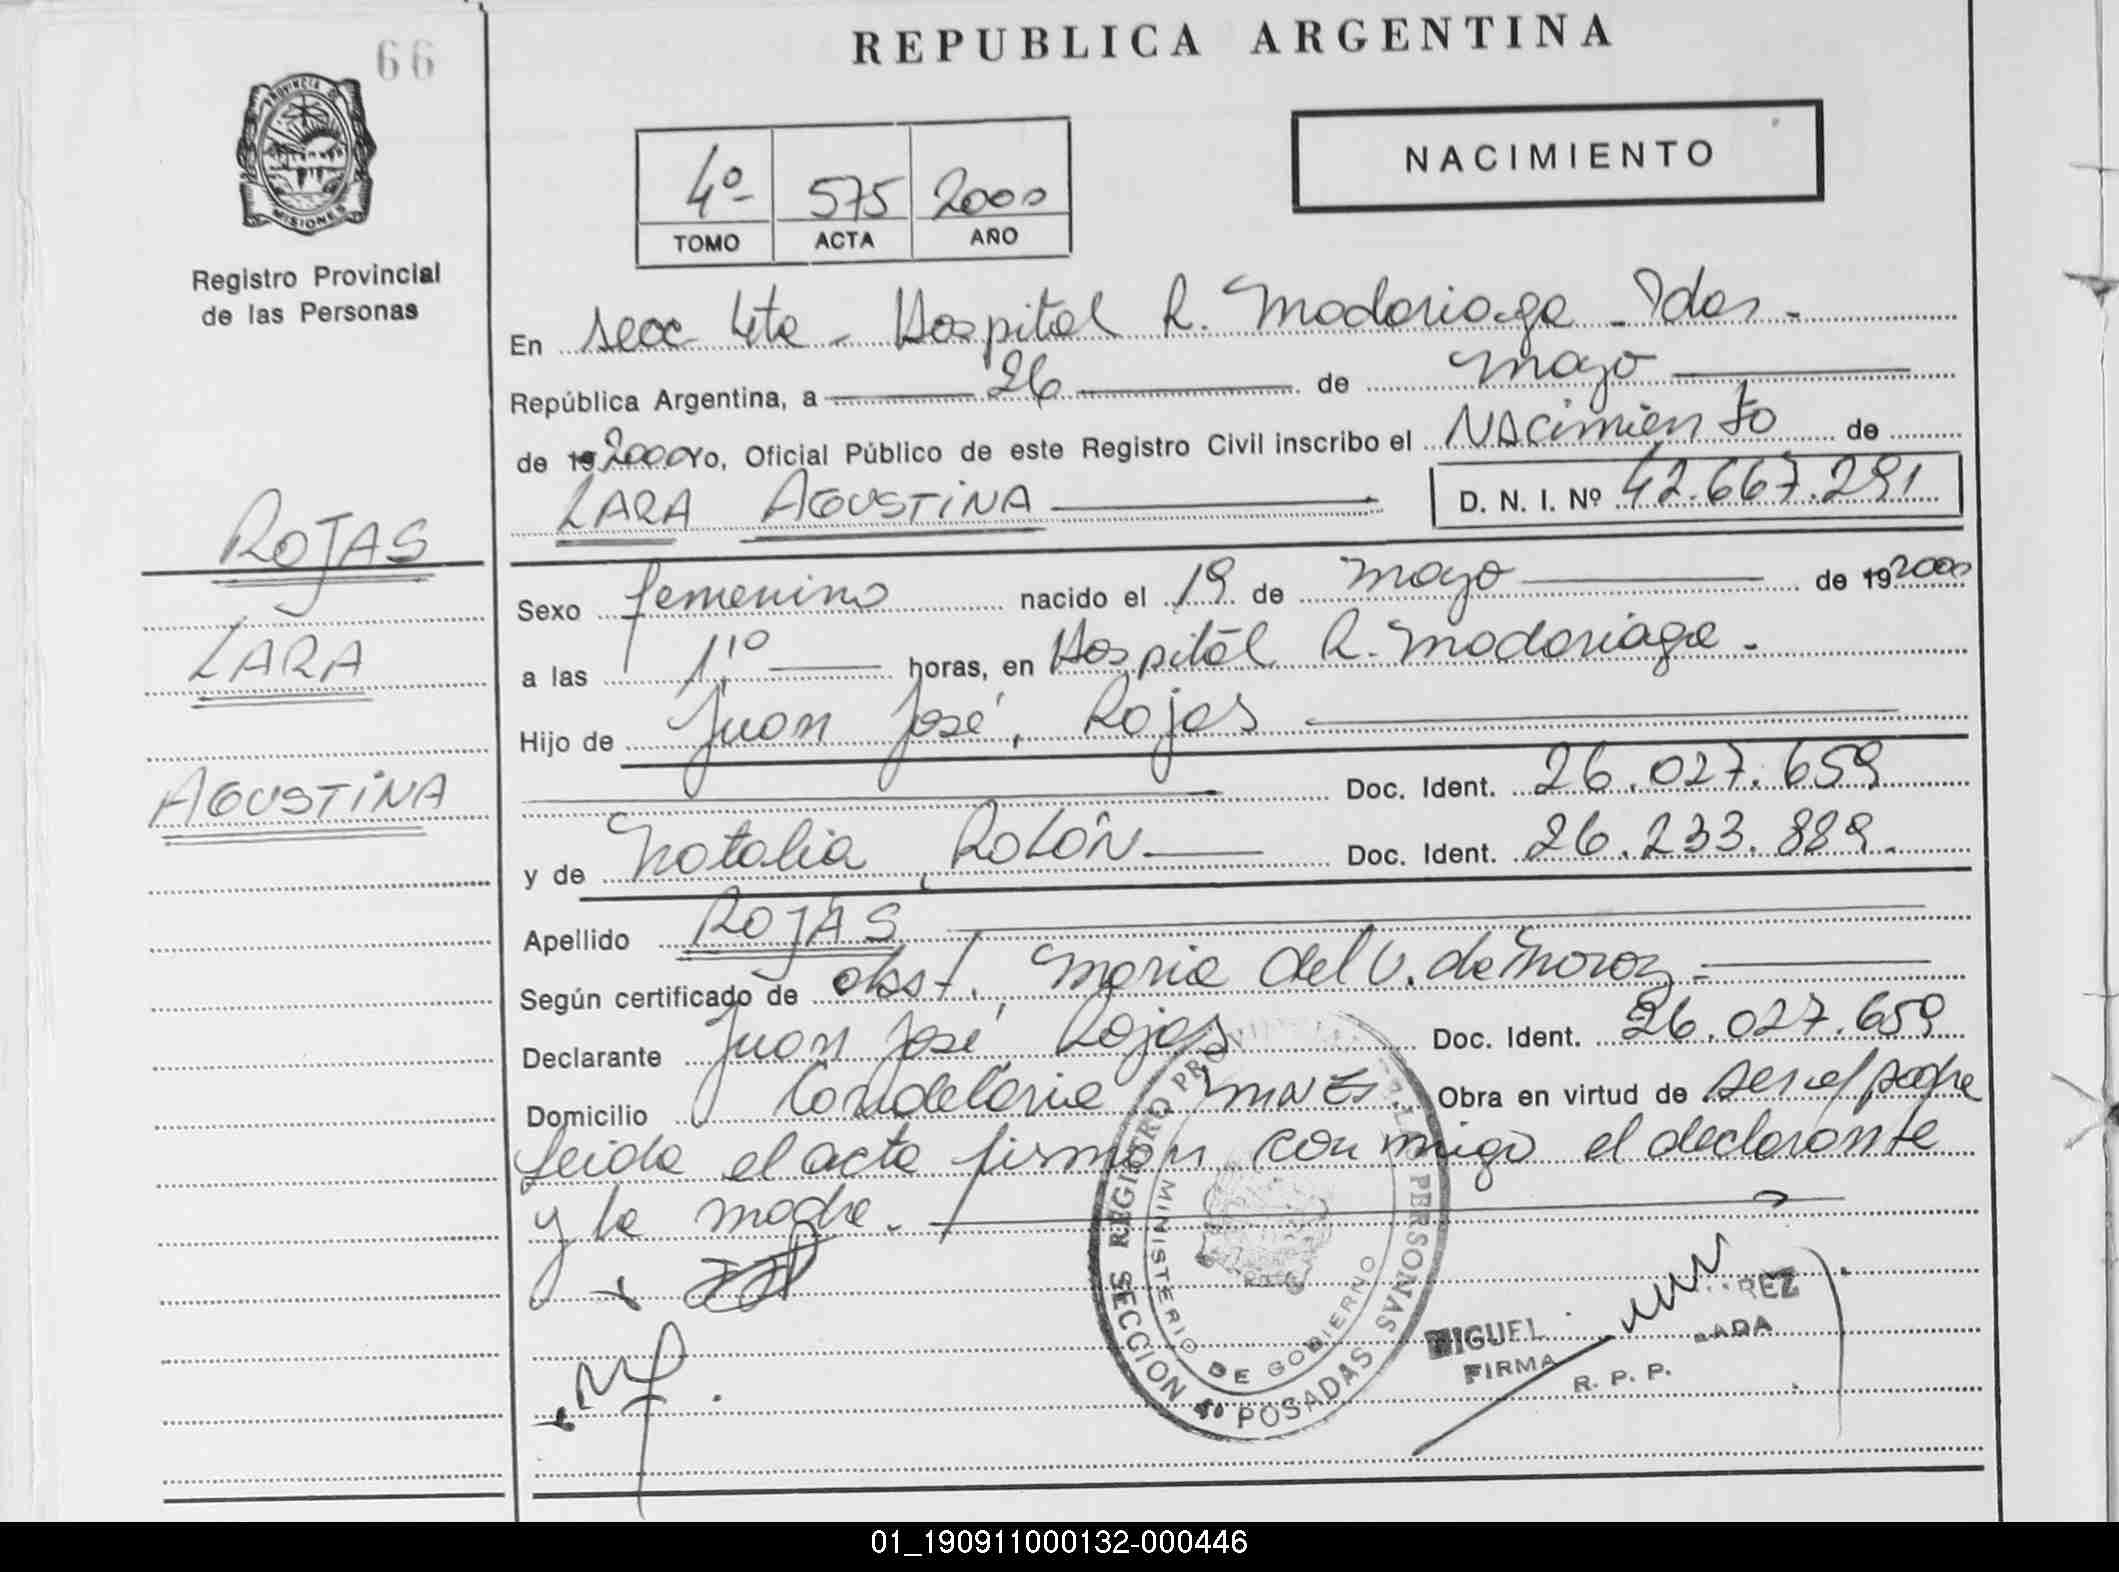 66
REPUBLICA ARGENTINA
PROVINCIA DE MISIONES
Registro Provincial
de las Personas
4º 575 2000
TOMO ACTA AÑO
NACIMIENTO
En secc 4ta - Hospital R. Madariaga - Pdas -
República Argentina, a 26 de mayo
de 19 2000 Yo, Oficial Público de este Registro Civil inscribo el NACimiento de
LARA AGUSTINA D. N. I. Nº 42.667.291
ROJAS
LARA
AGUSTINA
Sexo femenino nacido el 19 de mayo de 19 2000
a las 1,10 horas, en Hospital R. Madariaga -
Hijo de Juan José, Rojas
Doc. Ident. 26.027.659
y de Natalia, ROLÓN Doc. Ident. 26.233.889.
Apellido ROJAS
Según certificado de obst. Maria del C. de
Declarante Juan José, Rojas Doc. Ident. 26.027.659
Domicilio Candelaria MNES. Obra en virtud de ser el padre
leida el acta firman conmigo el declarante
y la madre.
REGISTRO PROVINCIAL DE LAS PERSONAS
MINISTERIO DE GOBIERNO
SECCION POSADAS
MIGUEL
FIRMA
R. P. P.
01_190911000132-000446